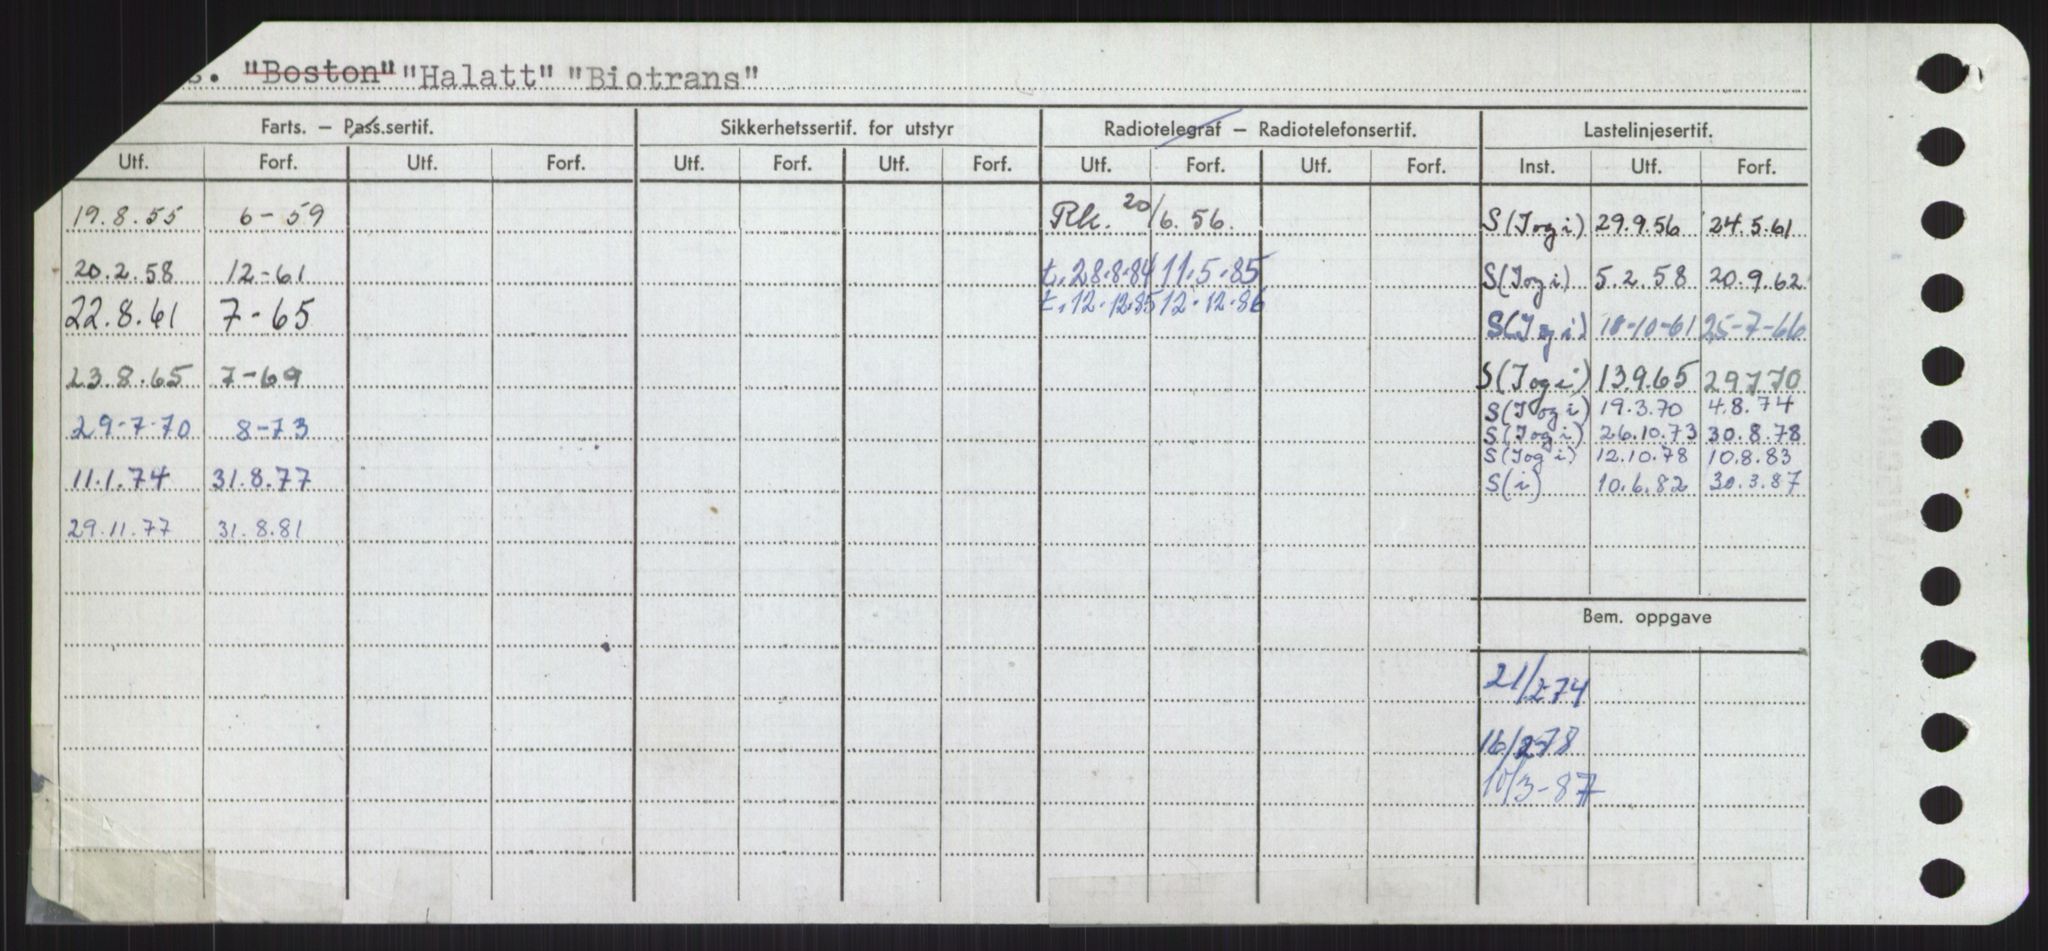 s. "Boston" "Halatt" "Biotrans"
Farts. — Pass.sertif. Sikkerhetssertif. for utstyr Radiotelegraf — Radiotelefonsertif. Lastelinjesertif.
Utf. Forf. Utf. Forf. Utf. Forf. Utf. Forf. Utf. Forf. Utf. Forf. Inst. Utf. Forf.
19.8.55 6-59 Rk. 20/6.56. S(Iogi) 29.9.56 24.5.61
20.2.58 12-61 t.28.8.84 11.5.85 S(Iogi) 5.2.58 20.9.62
22.8.61 7-65 t.12.12.85 12.12.86 S(Iogi) 18-10-61 25-7-66
23.8.65 7-69 S(Iogi) 13.9.65 29.7.70
S(Iogi) 19.3.70 4.8.74
29-7-70 8-73 S(Iogi) 26.10.73 30.8.78
S(Iogi) 12.10.78 10.8.83
11.1.74 31.8.77 S(i) 10.6.82 30.3.87
29.11.77 31.8.81
Bem. oppgave
21/2-74
16/2-78
10/3-87